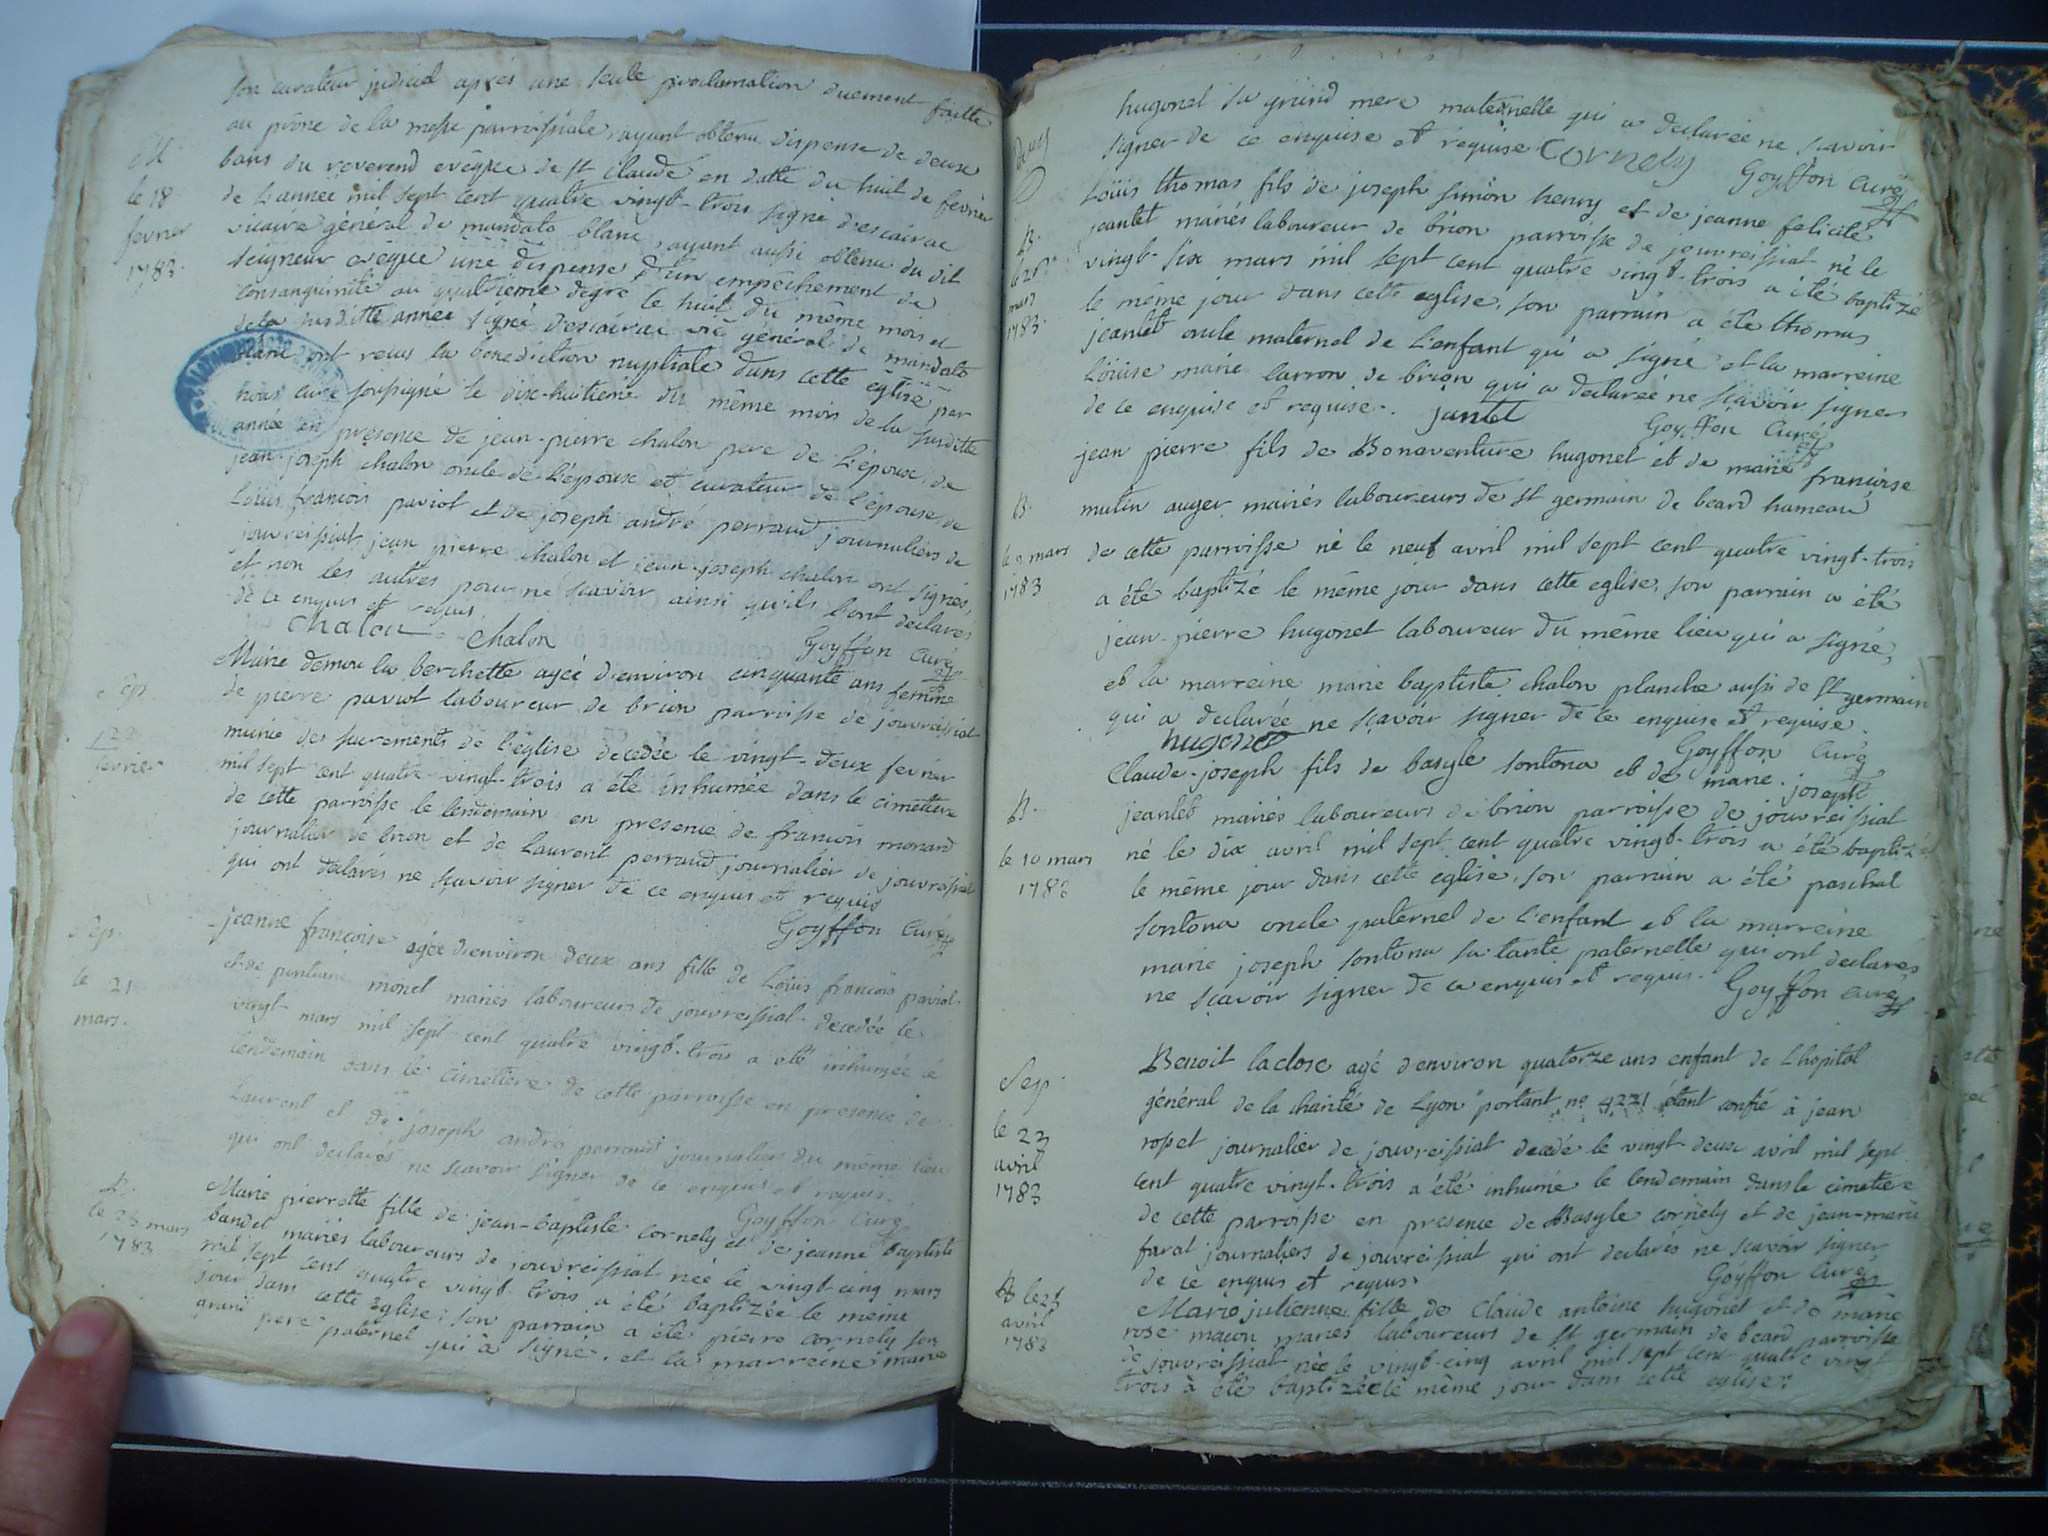 son curateur judiciel aprés une seule proclamation duement faitte
au prône de la messe parroissiale, ayant obtenu dispense de deux
bans du reverend evêque de st Claude en datte du huit de fevrier
de l'année mil sept cent quatre vingt-trois signé descairac
vicaire général de mandato blanc, ayant aussi obtenu du dit
seigneur evêque une dispense d'un empêchement de
consanguinité au quatrieme degré le huit du même mois et
de la susditte année signé descairac vic général de mandato
blanc ont recus la benediction nuptiale dans cette église par
nous curé soussigné le dix-huitieme du même mois de la susditte
année en presence de jean-pierre chalon pere de l'épouse, de
jean-joseph chalon oncle de l'épouse et curateur de l'épouse, de
Loüis francois paviot et de joseph andré perraud journaliers de
jouvreissiat, jean pierre chalon et jean-joseph chalon ont signés,
et non les autres pour ne scavoir ainsi qu'ils l'ont declarés
de ce enquis et requis
chalon chalon Goyffon Curé
M
le 18
fevrier
1783.
Marie demou la berchette agée d'environ cinquante ans femme
de pierre paviot laboureur de brion parroisse de jouvreissiat
munie des sacrements de l'église decedée le vingt-deux fevrier
mil sept cent quatre-vingt-trois a été inhumée dans le cimetiere
de cette parroisse le lendemain en presence de francois monard
journalier de brion et de Laurent perraud journalier de jouvreissiat
qui ont declarés ne scavoir signer de ce enquis et requis
Goyffon Curé
Sep.
fevrier
jeanne francoise agée d'environ deux ans fille de Loüis francois paviot
et de monet mariés laboureurs de jouvreissiat decedée le
vingt mars mil sept cent quatre vingt-trois a été inhumée le
lendemain dans le cimetiere de cette parroisse en presence de
Laurent et de joseph andré perraud journalier du même lieu
qui ont declarés ne scavoir signer de ce enquis et requis.
Goyffon Curé
Sep.
le 21
mars.
Marie pierrette fille de jean-baptiste cornely et de jeanne baptiste
bandet mariés laboureurs de jouvreissiat née le vingt-cinq mars
mil sept cent quatre vingt-trois a été baptizée le meme
jour dans cette église; son parrain a été pierre cornely son
grand pere paternel qui a signé, et la marreine marie
B.
le 25 mars
1783
hugonet sa grand mere maternelle qui a declarée ne scavoir
signer de ce enquise et requise Cornely
Goyffon Curé
Loüis thomas fils de joseph simon henry et de jeanne felicité
jeantet mariés laboureur de brion parroisse de jouvreissiat né le
vingt-six mars mil sept cent quatre vingt-trois a été baptizé
le même jour dans cette eglise, son parrain a été thomas
jeantet oncle maternel de l'enfant qui a signé et la marreine
Loüise marie larron de brion qui a declarée ne scavoir signer
de ce enquise et requise. jantet
Goyffon Curé
B.
le 26
mars
1783.
jean pierre fils de Bonaventure hugonet et de marie francoise
mutin auger mariés laboureurs de st germain de beard hameau
de cette parroisse né le neuf avril mil sept cent quatre vingt-trois
a été baptizé le même jour dans cette eglise, son parrain a été
jean-pierre hugonet laboureur du même lieu qui a signé,
et la marreine marie baptiste chalon planche aussi de st germain
qui a declarée ne scavoir signer de ce enquise et requise.
hugonet Goyffon Curé
B.
le 9 mars
1783
Claude-joseph fils de basyle sontona et de marie-joseph
jeantet mariés laboureurs de brion parroisse de jouvreissiat
né le dix avril mil sept cent quatre vingt-trois a été baptizé
le même jour dans cette eglise, son parrain a été paschal
sontona oncle paternel de l'enfant et la marreine
marie joseph sontona sa tante paternelle qui ont declarés
ne scavoir signer de ce enquis et requis. Goyffon Curé
B.
le 10 mars
1783
Benoit laclose agé d'environ quatorze ans enfant de L'hopital
général de la charité de Lyon portant no 4221 étant confié à jean
rosset journalier de jouvreissiat decedé le vingt-deux avril mil sept
cent quatre vingt-trois a été inhumé le lendemain dans le cimetiere
de cette parroisse en presence de Basyle cornely et de jean-marie
farat journaliers de jouvreissiat qui ont declarés ne scavoir signer
de ce enquis et requis.
Goyffon Curé
Sep.
le 23
avril
1783
Marie julienne fille de Claude antoine hugonet et de marie
rose macon mariés laboureurs de st germain de beard parroisse
de jouvreissiat née le vingt-cinq avril mil sept cent quatre vingt
trois a été baptizée le même jour dans cette eglise;
B le 25
avril
1783